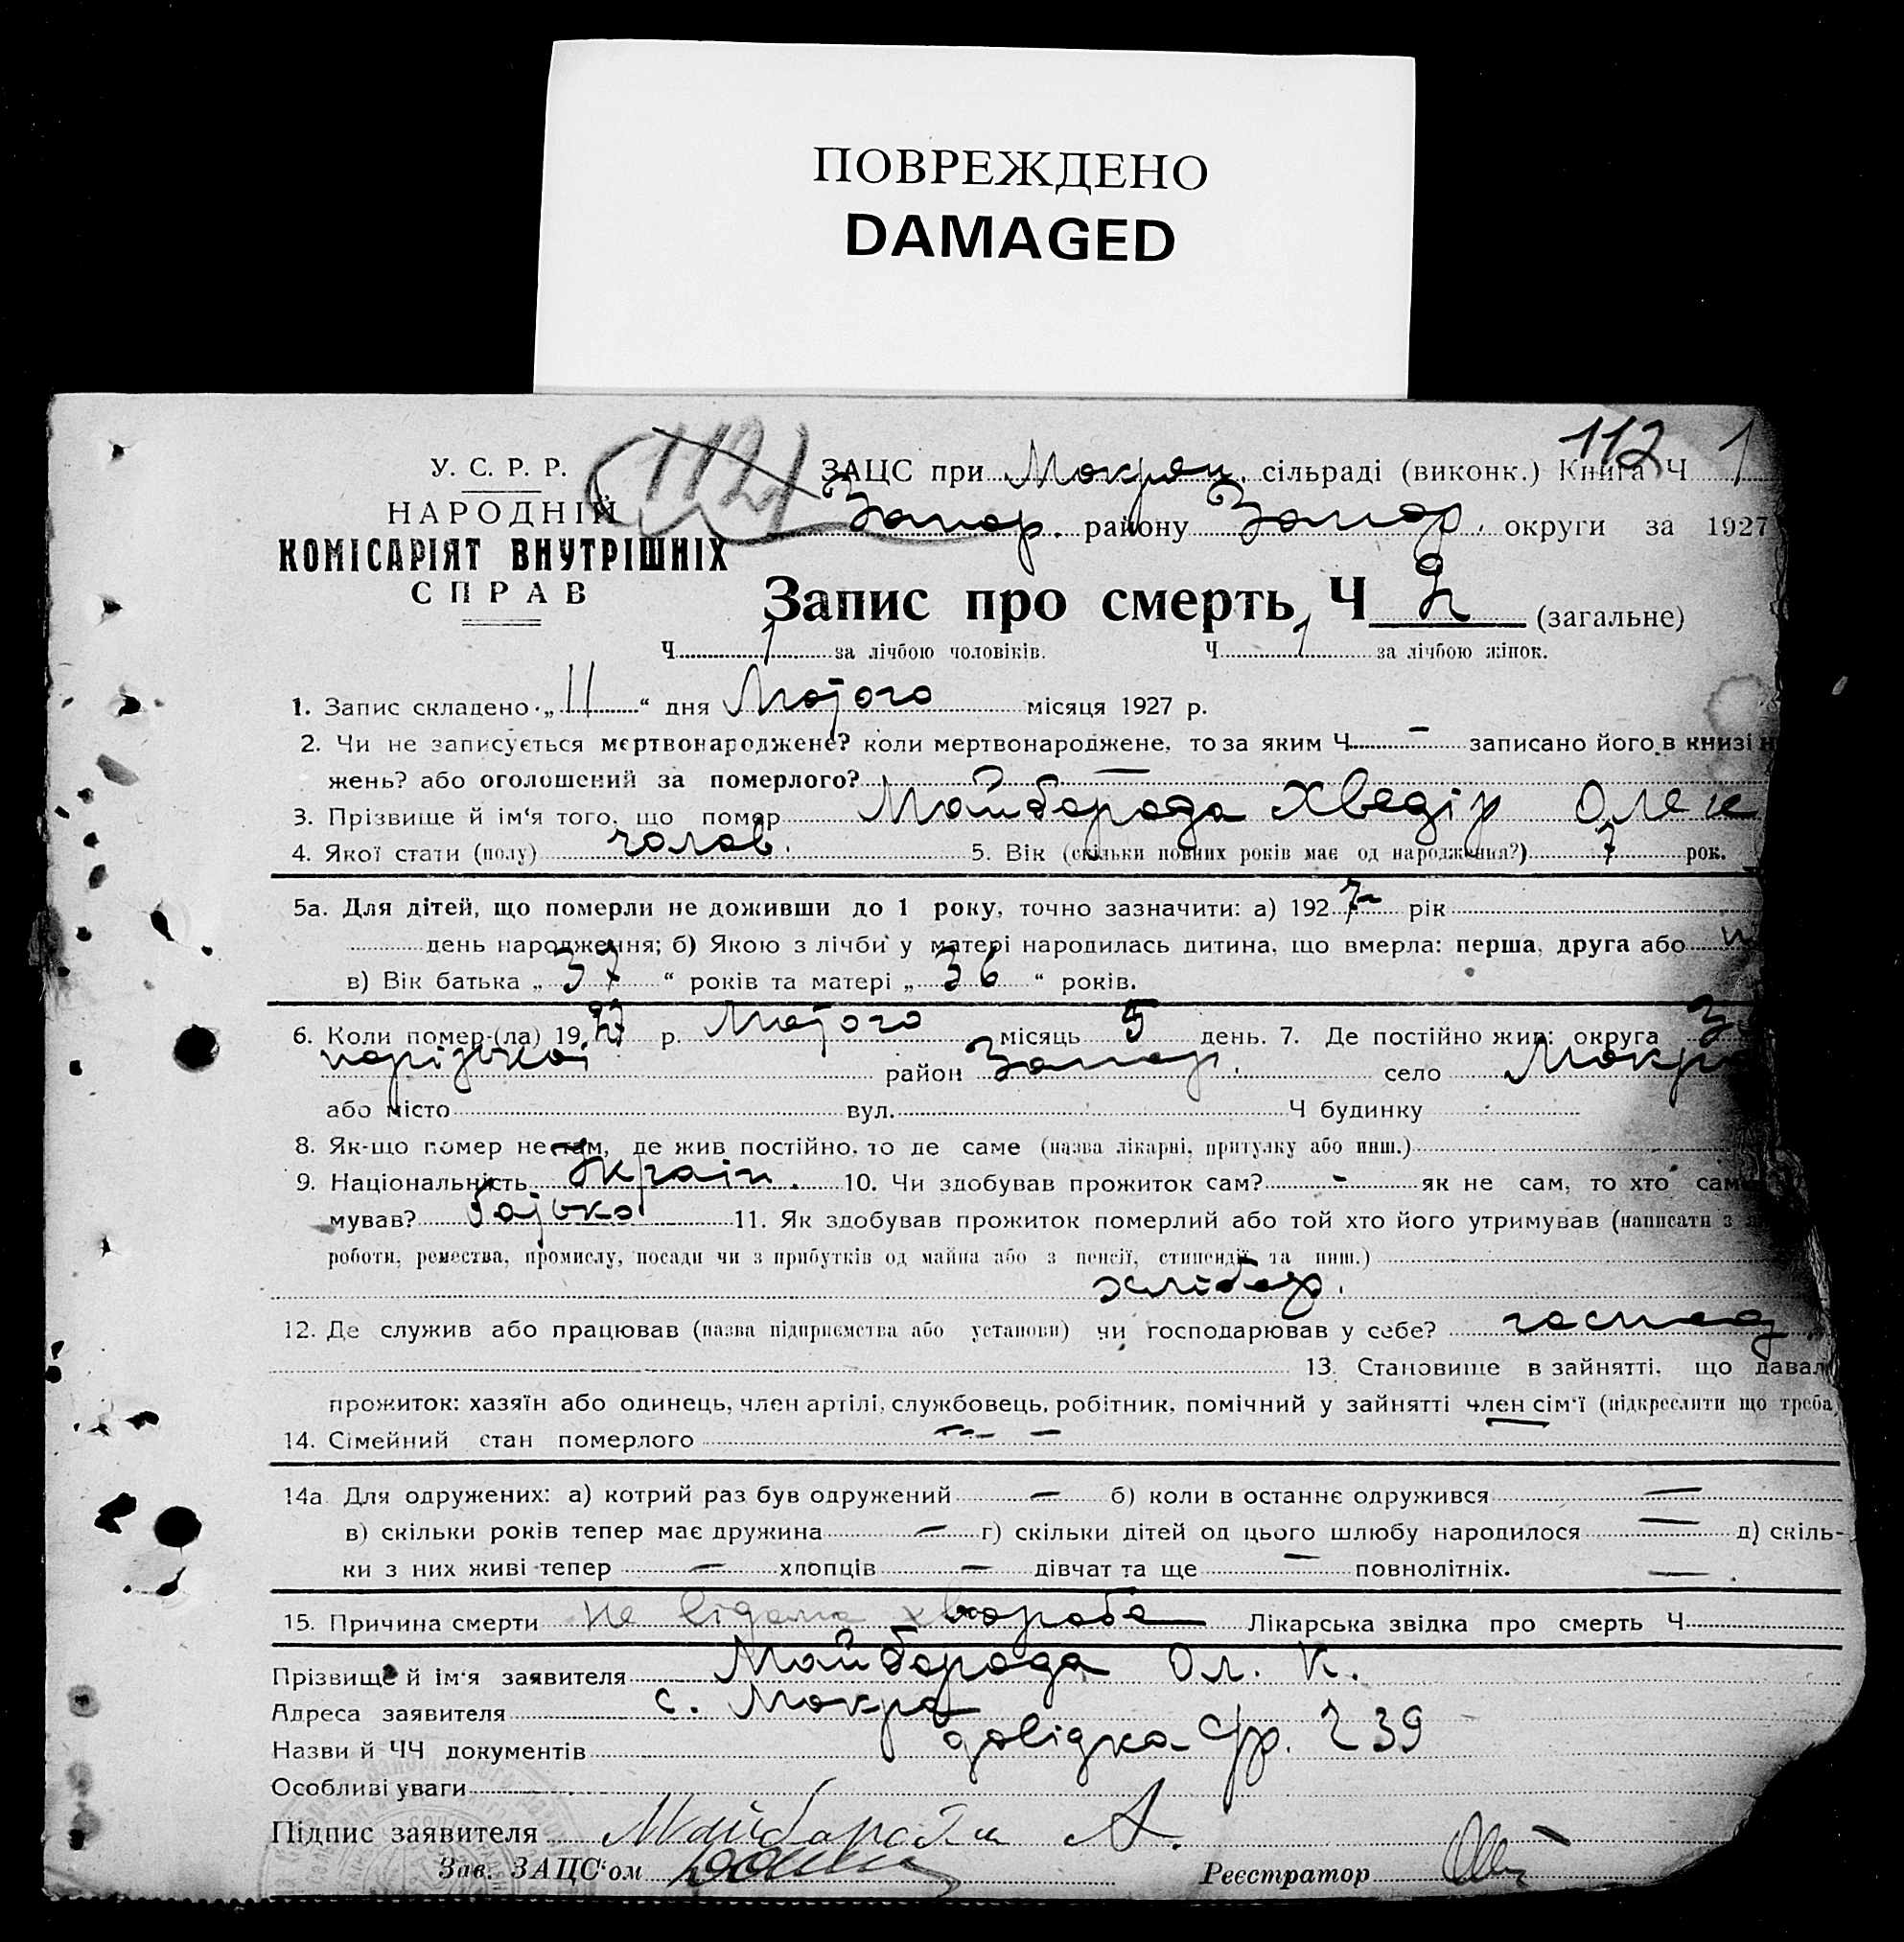 ПОВРЕЖДЕНО
DAMAGED
112
112 1
У. С. Р. Р.
НАРОДНІЙ
КОМІСАРІЯТ ВНУТРІШНІХ
СПРАВ
ЗАЦС при Мокрян. сільраді (виконк.) Книга Ч
Запор. району Запор. округи за 1927
Запис про смерть Ч 2 (загальне)
Ч 1 за лічбою чоловіків. Ч 1 за лічбою жінок.
1. Запис складено „11“ дня Лютого місяця 1927 р.
2. Чи не записується мертвонароджене? коли мертвонароджене, то за яким Ч – записано його в книзі н
жень? або оголошений за померлого? —
3. Прізвище й ім‘я того, що помер Майборода Хведір Олек
4. Якої стати (полу) чолов. 5. Вік (скільки повних років має од народження?) 7 рок.
5а. Для дітей, що померли не доживши до 1 року, точно зазначити: а) 1927 рік
день народження; б) Якою з лічби у матері народилась дитина, що вмерла: перша, друга або
в) Вік батька „37“ років та матері „36“ років.
6. Коли помер-(ла) 1927 р. Лютого місяць 5 день. 7. Де постійно жив: округа За
порізької район Запор. село Мокра
або місто вул. Ч будинку
8. Як-що помер не там, де жив постійно, то де саме (назва лікарні, притулку або инш.)
9. Національність Україн. 10. Чи здобував прожиток сам? - як не сам, то хто сам
мував? батько 11. Як здобував прожиток померлий або той хто його утримував (написати з
роботи, ремества, промислу, посади чи з прибутків од майна або з пенсії, стипендії та инш.)
хлібор.
12. Де служив або працював (назва підприємства або установи) чи господарював у себе? господ.
13. Становище в зайнятті, що давал
прожиток: хазяїн або одинець, член артілі, службовець, робітник, помічний у зайнятті член сім‘ї (підкреслити що треба)
14. Сімейний стан померлого — —
14а. Для одружених: а) котрий раз був одружений — б) коли в останнє одружився —
в) скільки років тепер має дружина — г) скільки дітей од цього шлюбу народилося — д) скіль-
ки з них живі тепер — хлопців — дівчат та ще — повнолітніх. —
15. Причина смерти не відома хвороба Лікарська звідка про смерть Ч
Прізвище й ім‘я заявителя Майборода Ол. К.
Адреса заявителя с. Мокра
Назви й ЧЧ документів довідка С/р. Ч 39
Особливі уваги
Підпис заявителя Майборода А.
Зав. ЗАЦС‘ом Реєстратор